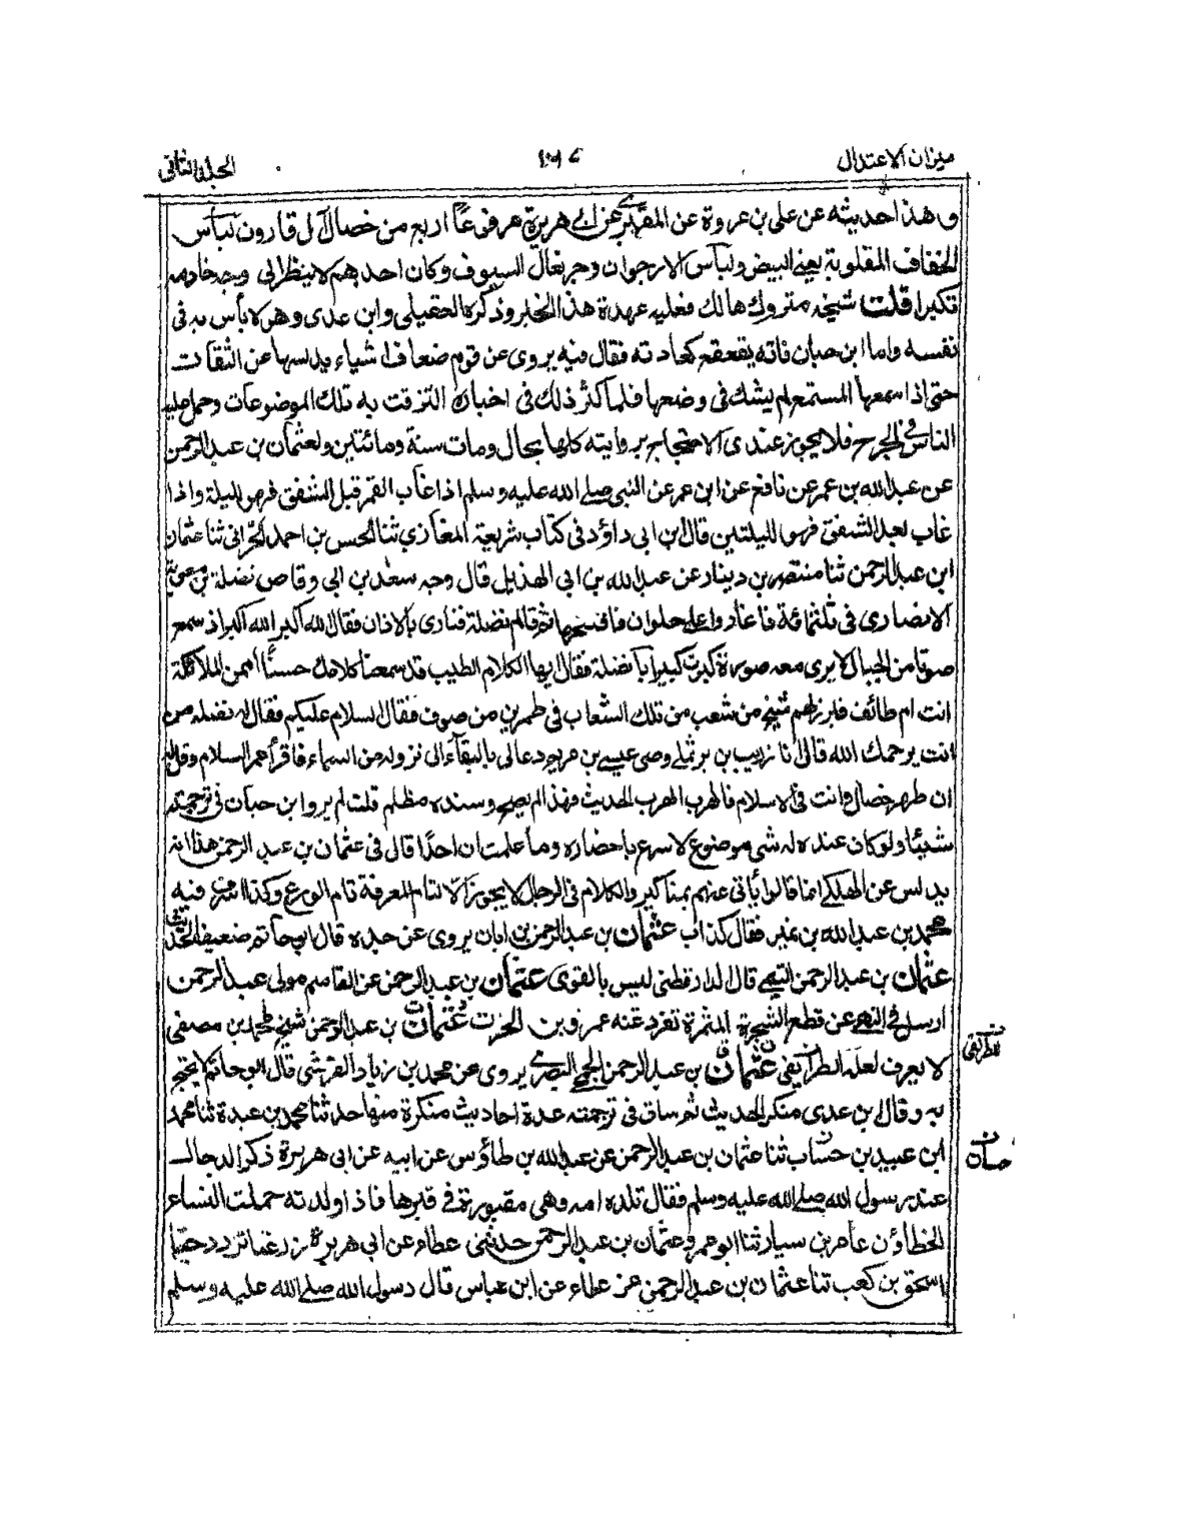 ميزان الاعتدال
المجلد الثاني
وهذا حديثه عن علي بن عروة عن المقبري عن ابي هريرة مرفوعًا اربع من خصال آل قارون لباس
الخفاف المقلوبة يعني البيض ولباس الارجوان وجر نعال السيوف وكان احدهم لا ينظر الى وجه خادمه
تكبرا قلت شيخه متروك هالك فعليه عهدة هذا الخبر وذكره العقيلي وابن عدى وهو لا بأس به فى
نفسه واما ابن حبان فانه يقعقع كعادته فقال فيه يروى عن قوم ضعاف اشياء يدلسها عن الثقات
حتى اذا سمعها المستمع لم يشك فى وضعها فلما كثر ذلك فى اخباره التزقت به تلك الموضوعات وحمل عليه
الناس فى الجرح فلا يجوز عندى الاحتجاج بروايته كلها بحال ومات سنة ومائتين ولعثمان بن عبد الرحمن
عن عبد الله بن عمر عن نافع عن ابن عمر عن النبى صلى الله عليه وسلم اذا غاب القمر قبل الشفق فهو لليلة واذا
غاب بعد الشفق فهو لليلتين قال ابن ابى داؤد فى كتاب شريعة المغازي ثنا الحسن بن احمد الحرانى ثنا عثمان
ابن عبد الرحمن ثنا منتصر بن دينار عن عبد الله بن ابى الهذيل قال وجه سعد بن ابي وقاص نضلة بن معوية
الانصارى فى ثلثمائة فاغاروا على حلوان فافتتحها ثم قام نضلة فنادى بالاذان فقال الله اكبر الله اكبر اذ سمع
صوتا من الجبال لا يرى معه صورة كبرت كبيرا يا نضلة فقال ايها الكلام الطيب قد سمعنا كلامك حسنًا أمن الملائكة
انت ام طائف فابرز لهم شيخ من شعب من تلك الشعاب فى طمرين من صوف فقال السلام عليكم فقال له نضلة من
انت يرحمك الله قال انا زريب بن برثملى وصى عيسى بن مريم دعا لى بالبقاء الى نزوله من السماء فاقرأ عمر السلام وقل له
ان ظهر خصال وانت فى الاسلام فالهرب الهرب الحديث فهذا لم يصح وسنده مظلم قلت لم يرو ابن حبان فى ترجمته
شيئا ولو كان عنده له شىء موضوع لاسرع باحضاره وما علمت ان احدًا قال فى عثمان بن عبد الرحمن هذا انه
يدلس عن الهلكى انما قالوا يأتى عنهم بمناكير والكلام فى الرجال لا يجوز الا لتام المعرفة تام الورع وكذا اسرف فيه
محمد بن عبد الله بن نمير فقال كذاب عثمان بن عبد الرحمن بن ابان يروى عن جده قال ابو حاتم ضعيف الحديث
عثمان بن عبد الرحمن التيمى قال الدارقطنى ليس بالقوى عثمان بن عبد الرحمن عن القاسم مولى عبد الرحمن
ارسل فى النهى عن قطع الشجرة المثمرة تفرد عنه عمرو بن الحرث عثمان بن عبد الرحمن شيخ لمحمد بن مصفى
لا يعرف لعله الطرائفى عثمان بن عبد الرحمن الجمحى البصرى يروى عن محمد بن زياد القرشى قال ابو حاتم لا يحتج
به وقال ابن عدى منكر الحديث ثم ساق فى ترجمته عدة احاديث منكرة منها حدثنا محمد بن عبدة ثنا محمد
ابن عبيد بن حساب ثنا عثمان بن عبد الرحمن عن عبد الله بن طاؤس عن ابيه عن ابى هريرة ذكر الدجال
عند رسول الله صلى الله عليه وسلم فقال تلده امه وهى مقبورة فى قبرها فاذا ولدته حملت النساء
الخطاؤن عامر بن سيار ثنا ابو عمرو عثمان بن عبد الرحمن حدثنى عطاء عن ابى هريرة زر غبا تزدد حبا
اسحق بن كعب ثنا عثمان بن عبد الرحمن عن عطاء عن ابن عباس قال رسول الله صلى الله عليه وسلم